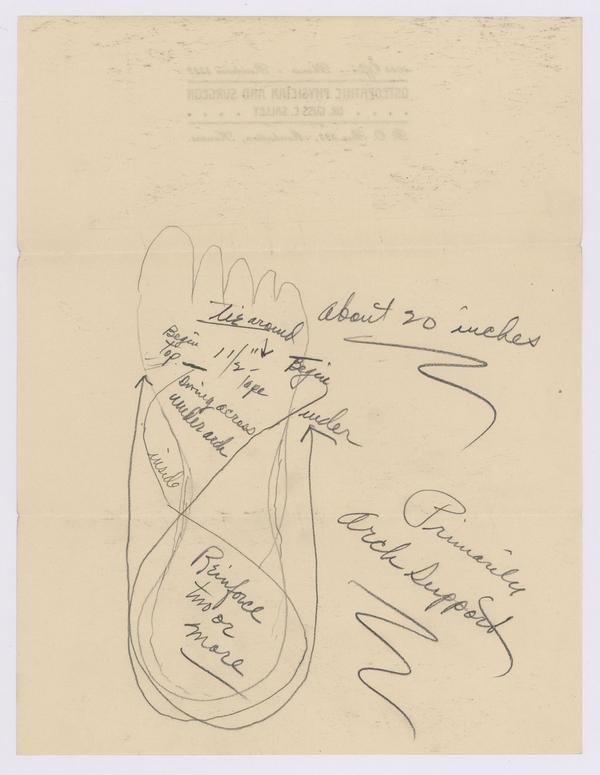 OSTEOPATHIC PHYSICIAN AND SURGEON
Tie around
about 20 inches
Begin
Top
1 1/2"
Tape
Begin
under
under arch
inside
Primarily
arch support
Reinforce
two or
more